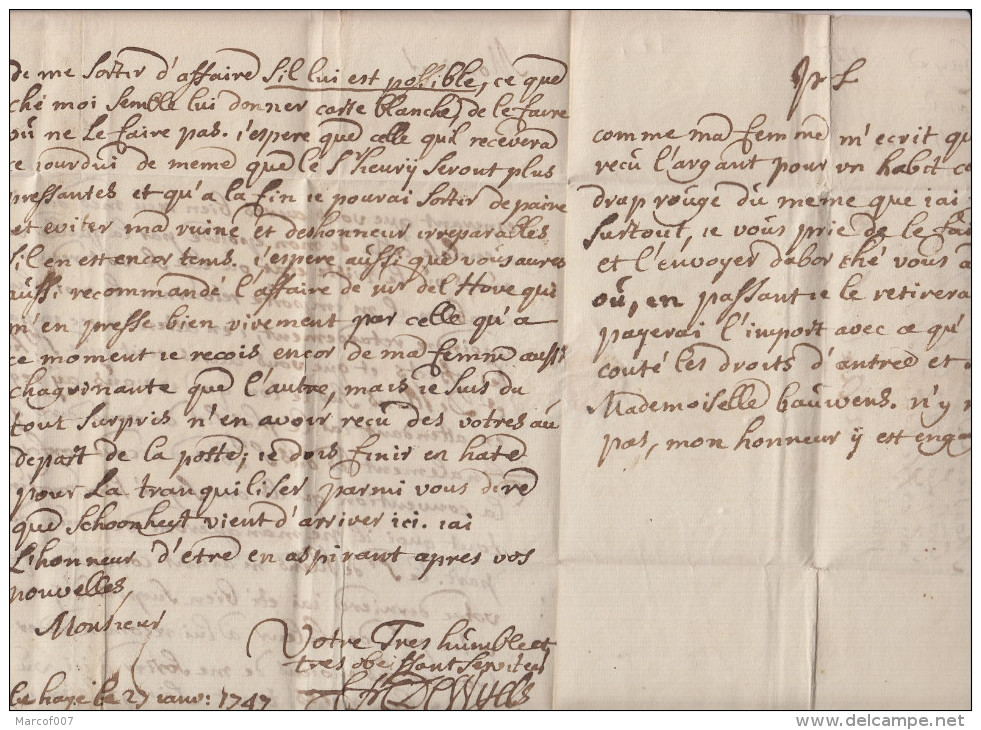 de me sortir d'affaire sil lui est possible, ce que
ché moi semble lui donner carte blanche, de le faire
où ne le faire pas. j'espere que celle quil recevera
ce jourdui de meme que le Sr fleurÿ seront plus
pressantes et qu'a la fin je pourai sortir de paine
et eviter ma ruine et deshonneur irreparalles
sil en est encor tems. j'espere aussi que vous aures
aussi recommandé l'affaire de mr del Hove qui
m'en presse bien vivement par celle qu'a
ce moment je recois encor de ma femme aussi
chagrinante que l'autre, mais je suis du
tout surpris n'en avoir reçu des votres aú
depart de la poste; je dois finir en hate
pour la tranquiliser parmi vous dire
que Schoonheyt vient d'arriver ici. jai
Lhonneur d'étre en aspirant apres vos
nouvelles,
Monsieur
Votre Tres humble et
tres obeissant serviteur
La haye le 27 janv: 1747
P S
comme ma femme m'ecrit qu
reçu l'argant pour un habit co
drap rouge du meme que jai
surtout, je vous prie de le fai
et l'envoyer dabor ché vous a
où, en passant je le retirera
payerai l'import avec ce qu'
couté les droits d'antree et
Mademoiselle bauwens. n'y m
pas, mon honneur ÿ est enga
Marcof007
www.delcampe.net